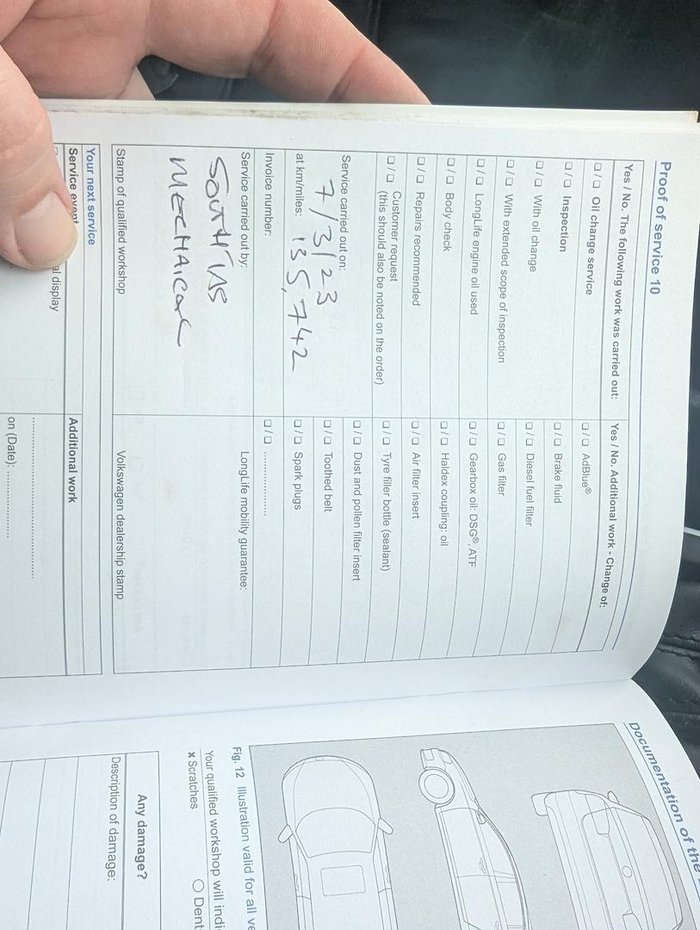 Proof of service 10
Yes / No. The following work was carried out:
☐ / ☐ Oil change service
☐ / ☐ Inspection
☐ / ☐ With oil change
☐ / ☐ With extended scope of inspection
☐ / ☐ LongLife engine oil used
☐ / ☐ Body check
☐ / ☐ Repairs recommended
☐ / ☐ Customer request
(this should also be noted on the order)
Service carried out on:
7/3/23
at km/miles: 135,742
Invoice number:
Service carried out by:
MECHAICAL
Stamp of qualified workshop
Yes / No. Additional work - Change of:
☐ / ☐ AdBlue®
☐ / ☐ Brake fluid
☐ / ☐ Diesel fuel filter
☐ / ☐ Gas filter
☐ / ☐ Gearbox oil: DSG®, ATF
☐ / ☐ Haldex coupling: oil
☐ / ☐ Air filter insert
☐ / ☐ Tyre filler bottle (sealant)
☐ / ☐ Dust and pollen filter insert
☐ / ☐ Toothed belt
☐ / ☐ Spark plugs
☐ / ☐ ................
LongLife mobility guarantee:
Volkswagen dealership stamp
Your next service
Service event
display
Additional work
on (Date):
Documentation of the
Fig. 12 Illustration valid for all
Your qualified workshop will
x Scratches
○ Dent
Any damage?
Description of damage: